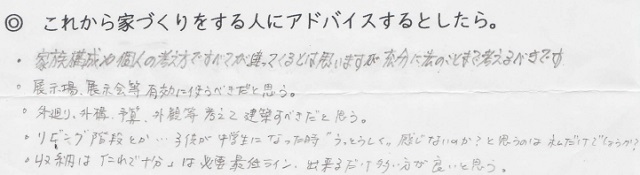 ◎ これから家づくりをする人にアドバイスするとしたら。
・家族構成や個人の考え方ですべてが違ってくるとは思いますが 充分に先のことまで考えるべきです
・展示場、展示会等 有効に使うべきだと思う。
・外廻り、外構、予算、外観等 考えて 建築すべきだと思う。
・リビング階段とか… 子供が中学生になった時“うっとうしく„感じないのか？と思うのは 私だけでしょうか？
・収納は「これで十分」は必要最低ライン、出来るだけ多い方が良いと思う。